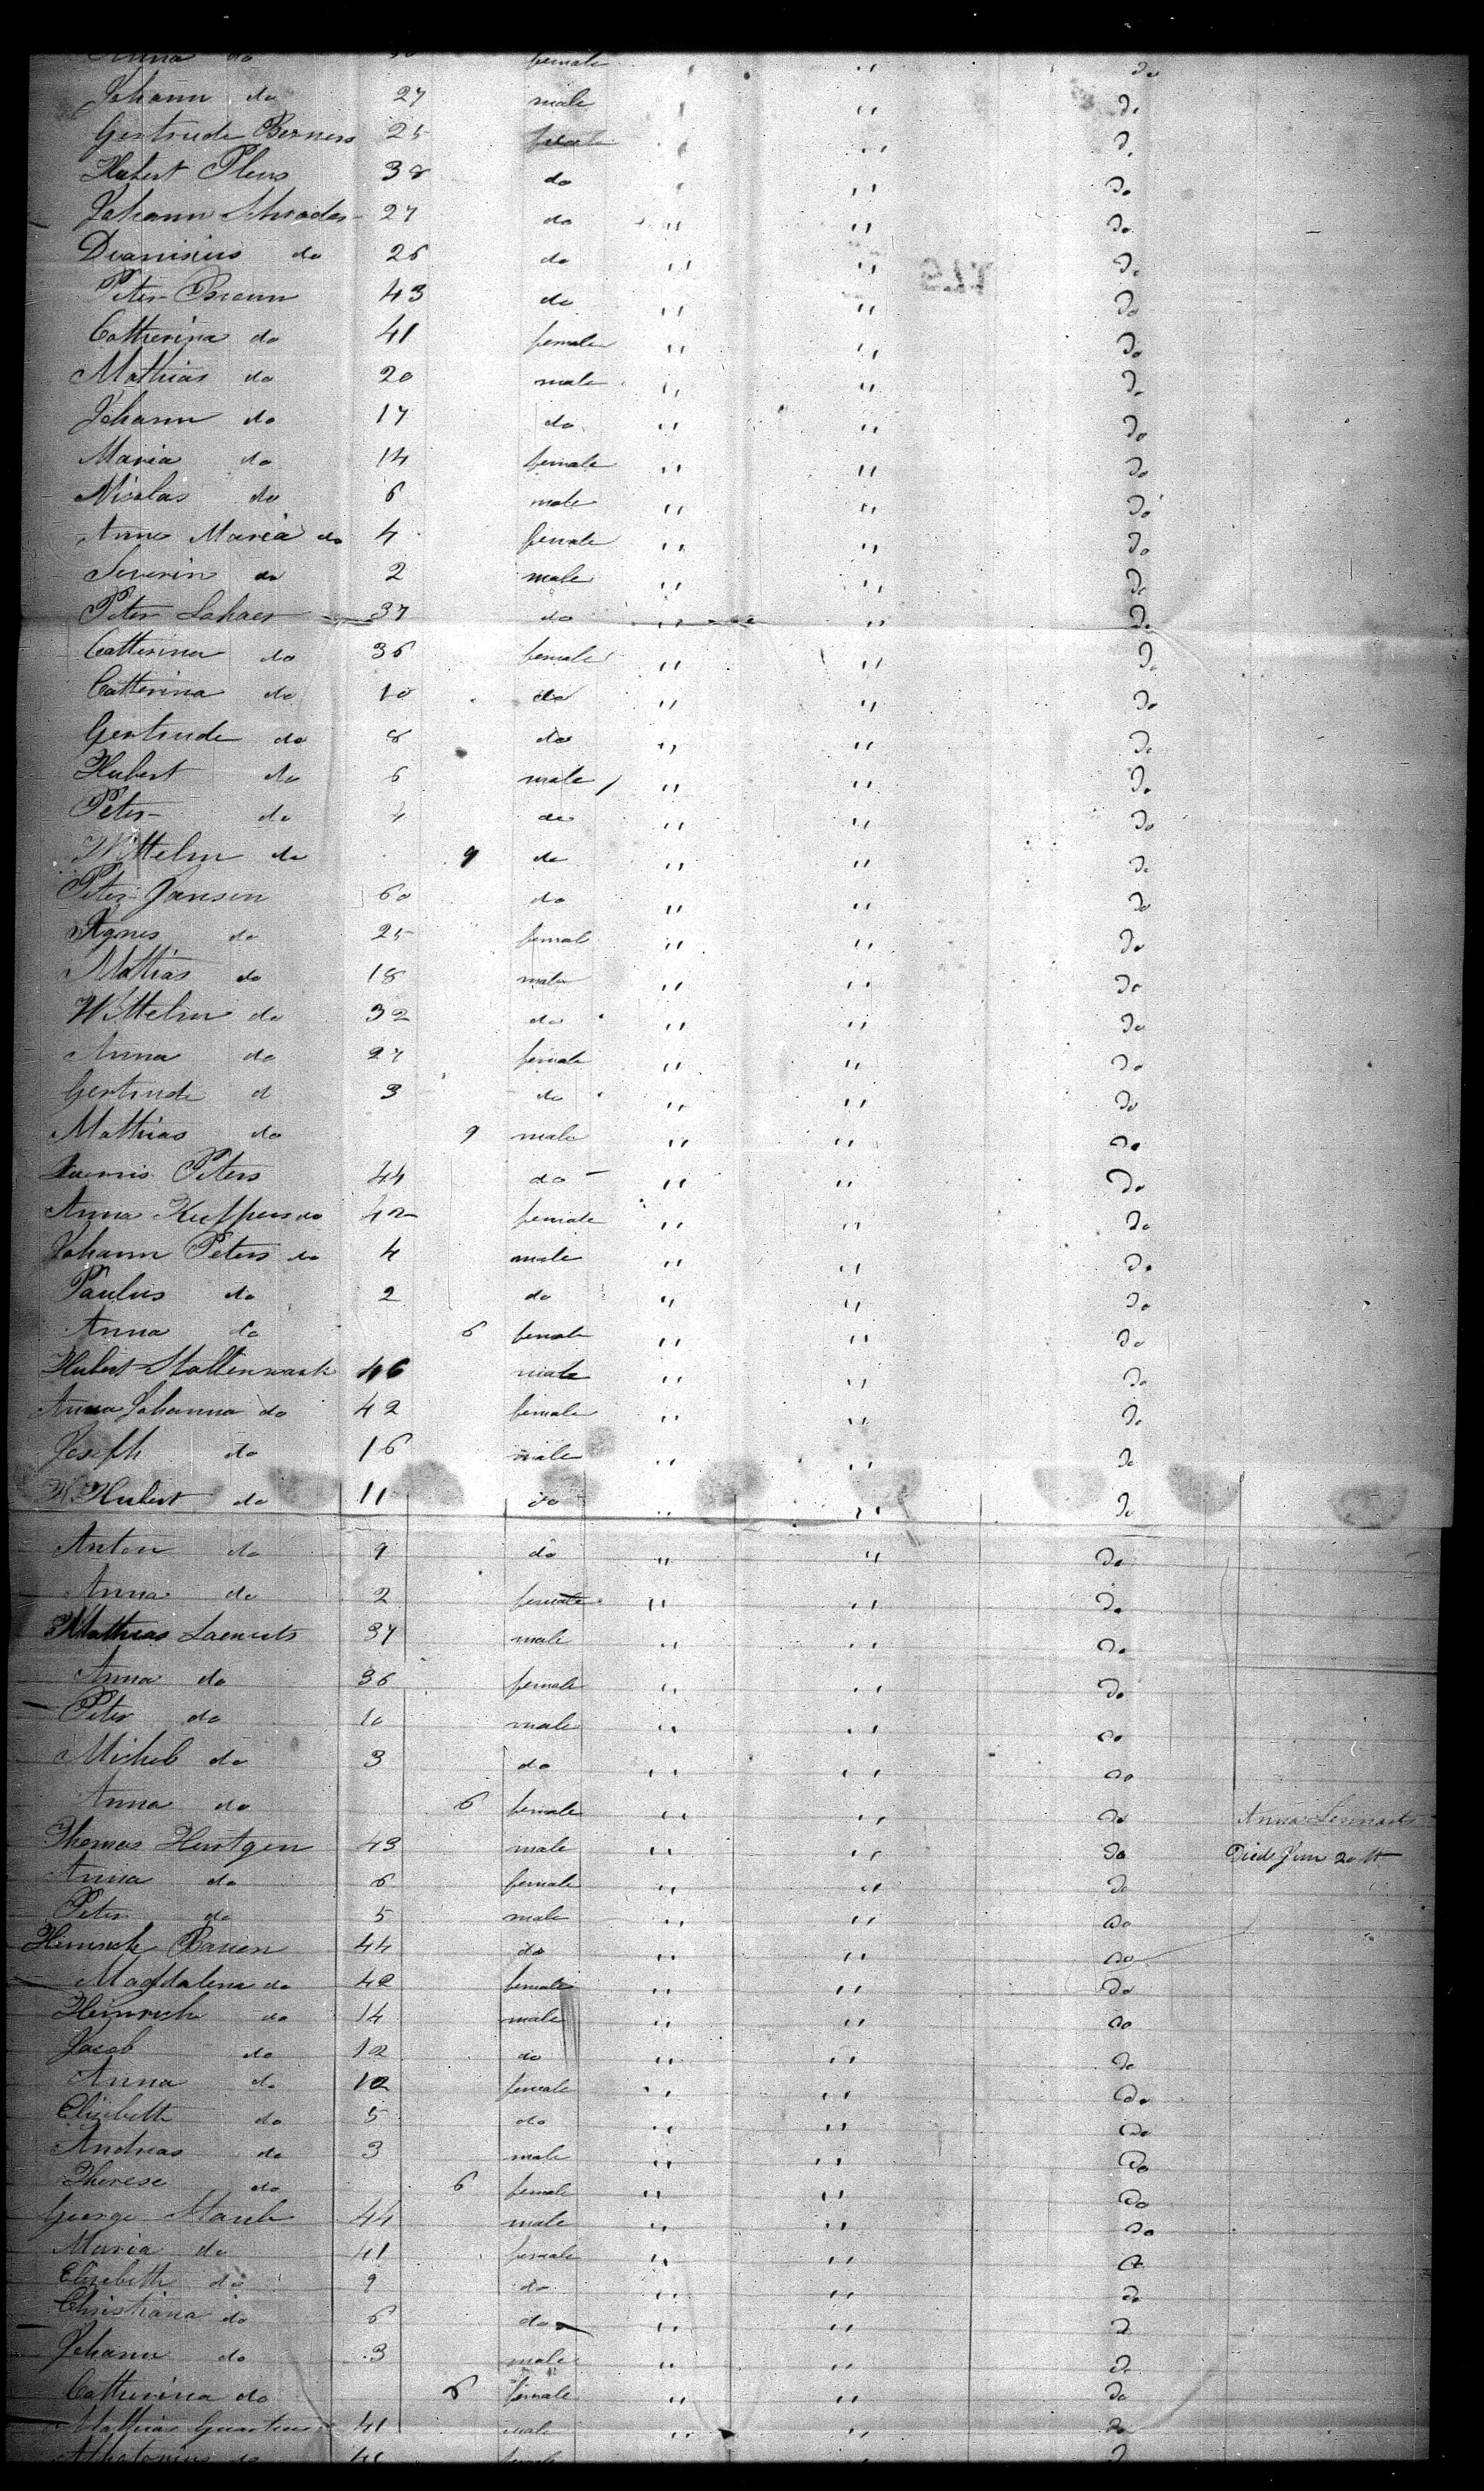 Anna do female " Do
Johann do 27 male " Do
Gertrude Berners 25 female " Do
Hubert Plens 38 do " " Do
Johann Schrader 27 do " " Do
Dianisius do 26 do " " Do
Peter Braun 43 do " " Do
Catherina do 41 female " " Do
Mathias do 20 male " " Do
Johann do 17 do " " Do
Maria do 14 female " " Do
Nicolas do 6 male " " Do
Anna Maria do 4 female " " Do
Severin do 2 male " " Do
Peter Lahaer 37 do " " Do
Catterina do 36 female " " Do
Catterina do 10 do " " Do
Gertrude do 8 do " " Do
Hubert do 6 male " " Do
Peter do 4 do " " Do
Wittelm do 9 do " " Do
Peter Jansen 60 do " " Do
Agnes do 25 femal " " Do
Mathias do 18 male " " Do
Wittelm do 32 do " " Do
Anna do 27 female " " Do
Gertrude d 3 do " " Do
Mathias do 9 male " " Do
Peters 44 do " " Do
Anna Kuppers do 42 female " " Do
Johann Peters do 4 male " " Do
Paulus do 2 do " " Do
Anna do 6 female " " Do
Hubert Stoltenwark 46 male " " Do
Anna Johanna do 42 female " " Do
Joseph do 16 male " " Do
Hubert do 11 do " " Do
Anton do 9 do " " Do
Anna do 2 female " " Do
Mathias Laenerts 37 male " " Do
Anna do 36 female " " Do
Peter do 10 male " " Do
Michel do 3 do " " Do
Anna do 6 female " " Do Anna Lennarts
Thomas Hurtgen 43 male " " Do Died Jun 20th
Anna do 6 female " " Do
Peter do 5 male " " Do
Heinrich Bauen 44 do " " Do
Magdalena do 42 female " " Do
Heinrich do 14 male " " Do
Jacob do 12 do " " Do
Anna do 12 female " " Do
Elizabeth do 5 do " " Do
Andreas do 3 male " " Do
Therese do 6 female " " Do
George Staub 44 male " " Do
Maria do 41 female " " Do
Elizabeth do 9 do " " Do
Christiana do 6 do " " Do
Johann do 3 male " " Do
Catherina do 6 female " " Do
Mathias 41 male " " Do
do female